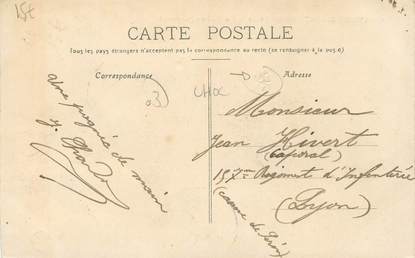 15€
CARTE POSTALE
Tous les pays étrangers n'acceptent pas la correspondance au recto (se renseigner à la poste)
Correspondance
Adresse
Une poignée de main
03
CHOC
Monsieur
Jean Hivert
(Caporal)
Régiment d'Infanterie
(Lyon)
(caserne de